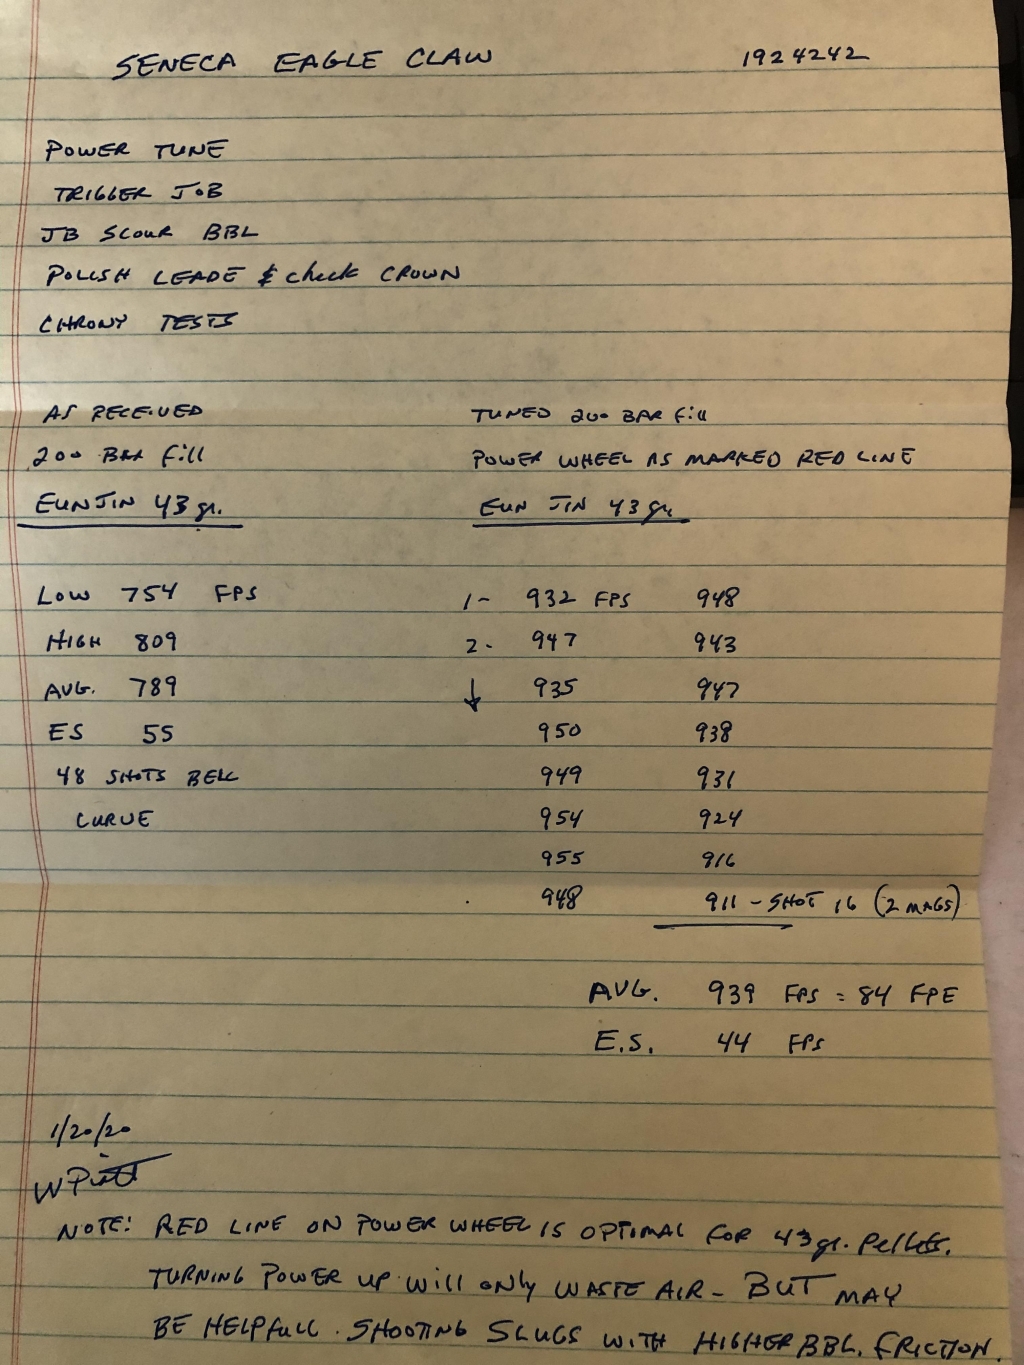 SENECA EAGLE CLAW 1924242
POWER TUNE
TRIGGER JOB
JB SCOUR BBL
POLISH LEADE & check CROWN
CHRONY TESTS
AS RECEIVED TUNED 200 BAR fill
200 BAR fill POWER WHEEL AS MARKED RED LINE
EUNJIN 43 gr. EUN JIN 43 gr.
LOW 754 FPS 1- 932 FPS 948
HIGH 809 2- 947 943
AVG. 789 ↓ 935 947
ES 55 950 938
48 SHOTS BELL 949 931
CURVE 954 924
955 916
948 911 - SHOT 16 (2 MAGS)
AVG. 939 FPS = 84 FPE
E.S. 44 FPS
1/20/20
W Piatt
NOTE: RED LINE ON POWER WHEEL IS OPTIMAL FOR 43 gr. Pellets.
TURNING POWER UP will only WASTE AIR - BUT MAY
BE HELPFULL SHOOTING SLUGS WITH HIGHER BBL. FRICTION.